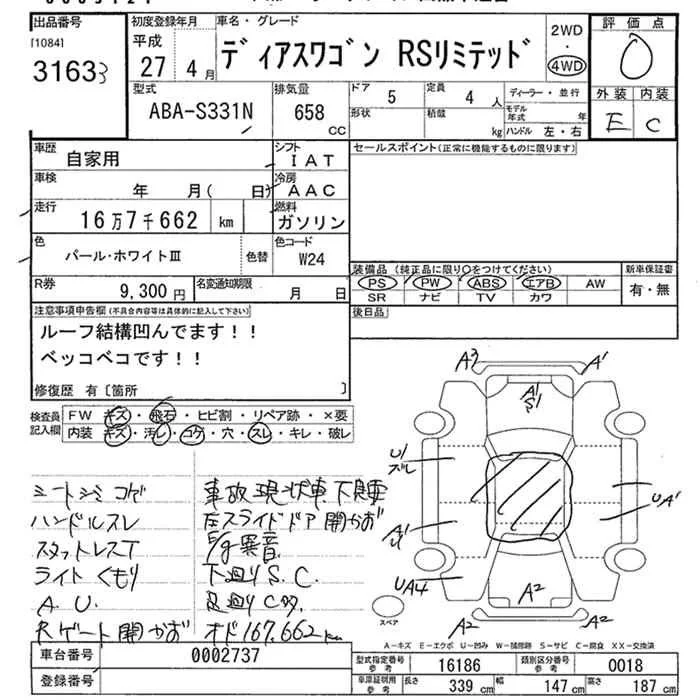 出品番号
[1084]
3163
初度登録年月
平成
27 4月
車名・グレード
ディアスワゴン RSリミテッド
2WD
・
4WD
評価点
0
外装 内装
E C
型式
ABA-S331N
排気量
658 CC
ドア 5
定員 4 人
形状
積載 kg
ディーラー・並行
モデル年式 年
ハンドル 左・右
車歴 自家用
シフト IAT
車検 年 月( 日)
冷房 AAC
走行 16万7千662 km
燃料 ガソリン
色 パール・ホワイトIII
色替
色コード W24
R券 9,300円
名変通知期限 月 日
セールスポイント(正常に機能するものに限ります)
装備品(純正品に限り○をつけてください)
PS PW ABS エアB AW
SR ナビ TV カワ
新車保証書
有・無
後日品
注意事項申告欄(不具合内容等は具体的に記入して下さい)
ルーフ結構凹んでます!!
ベッコベコです!!
修復歴 有〔箇所 〕
検査員記入欄
FW キズ・飛石・ヒビ割・リペア跡・×要
内装 キズ・汚レ・コゲ・穴・スレ・キレ・破レ
シートシミコゲ
ハンドルスレ
スタットレスT
ライトくもり
A.U.
Rゲート開かお
事故現状車
左スライドドア開かお
E/g異音
下廻りS.C.
足廻りC多
オド167,662km
A3 A1
A1
S1
U1
ズレ
UA1
A1
UA4
A2
A2 A2
スペア
A-キズ E-エクボ U-凹み W-補修跡 S-サビ C-腐食 XX-交換済
車台番号 0002737
登録番号
型式指定番号 参考 16186
類別区分番号 参考 0018
車庫証明用 参考
長さ 339 cm 幅 147 cm 高さ 187 cm